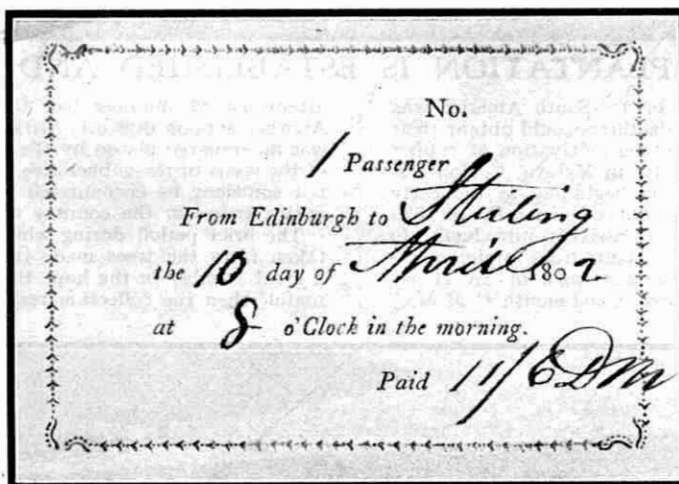 No.
1 Passenger
From Edinburgh to Stirling
the 10 day of April 1802
at 8 o'Clock in the morning.
Paid 11/